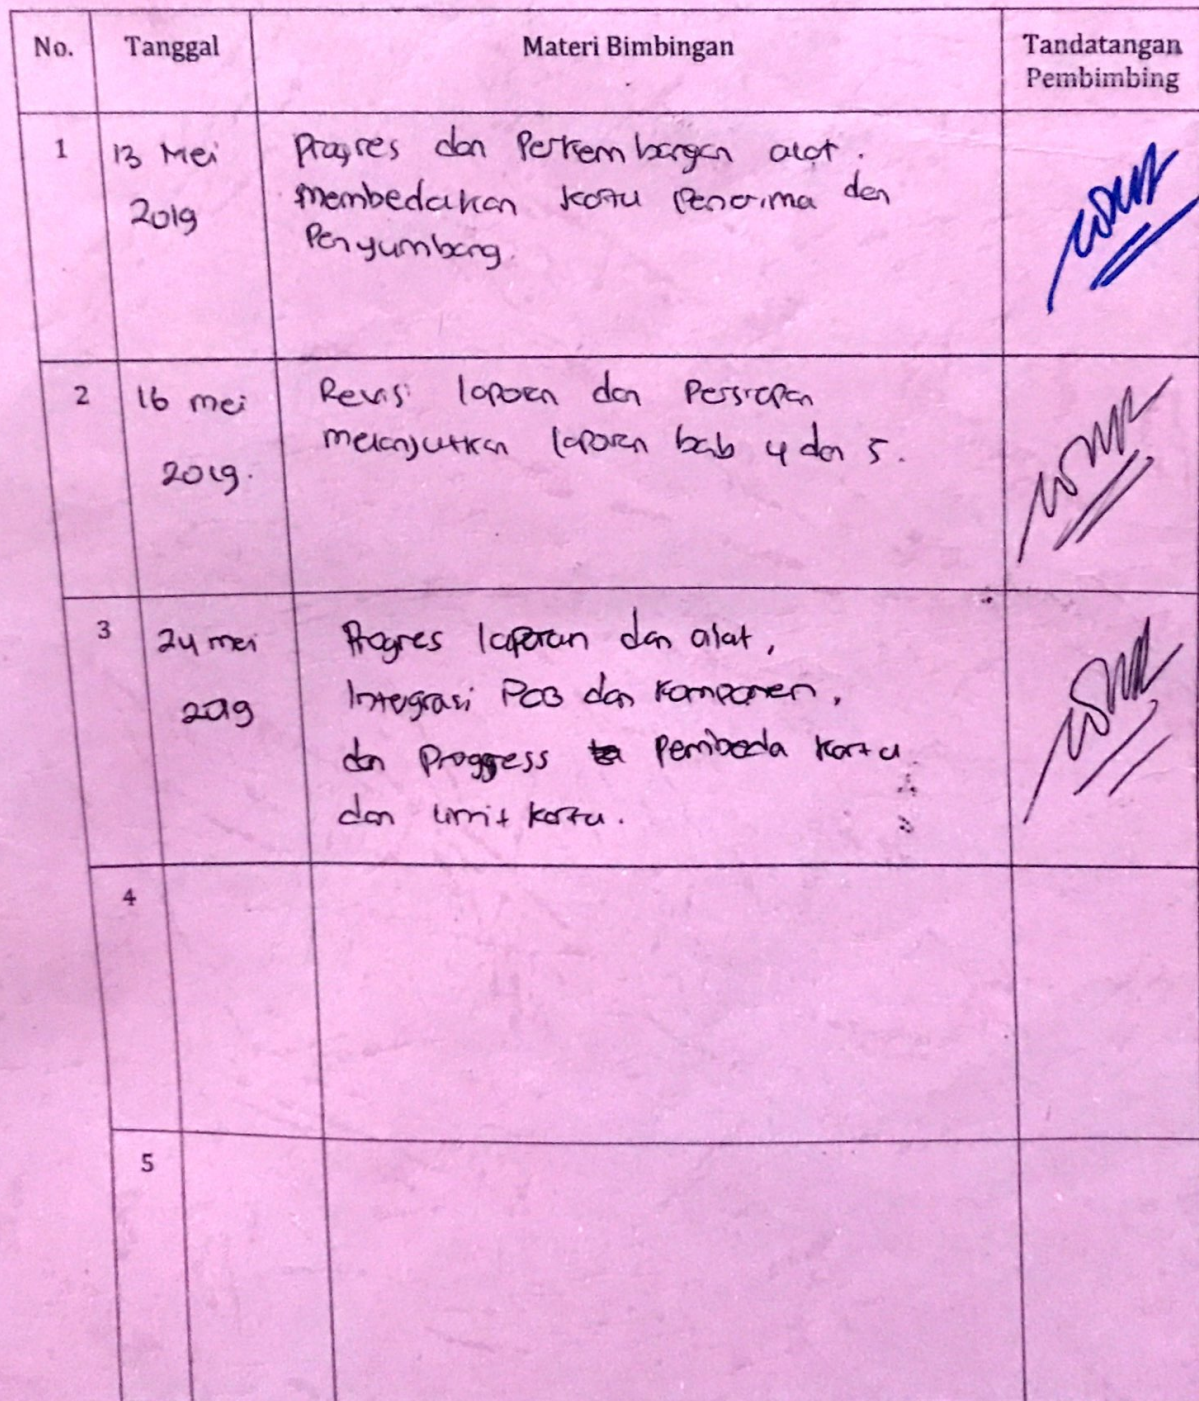 No. Tanggal Materi Bimbingan Tandatangan
Pembimbing
1 13 Mei Progres dan Perkembangan alat.
2019 membedakan kartu Penerima dan
Penyumbang.
2 16 mei Revisi laporan dan Persiapan
2019. melanjutkan laporan bab 4 dan 5.
3 24 mei Progres laporan dan alat,
2019 Integrasi PCB dan Komponen,
dan Proggress Pembeda kartu
dan limit kartu.
4
5